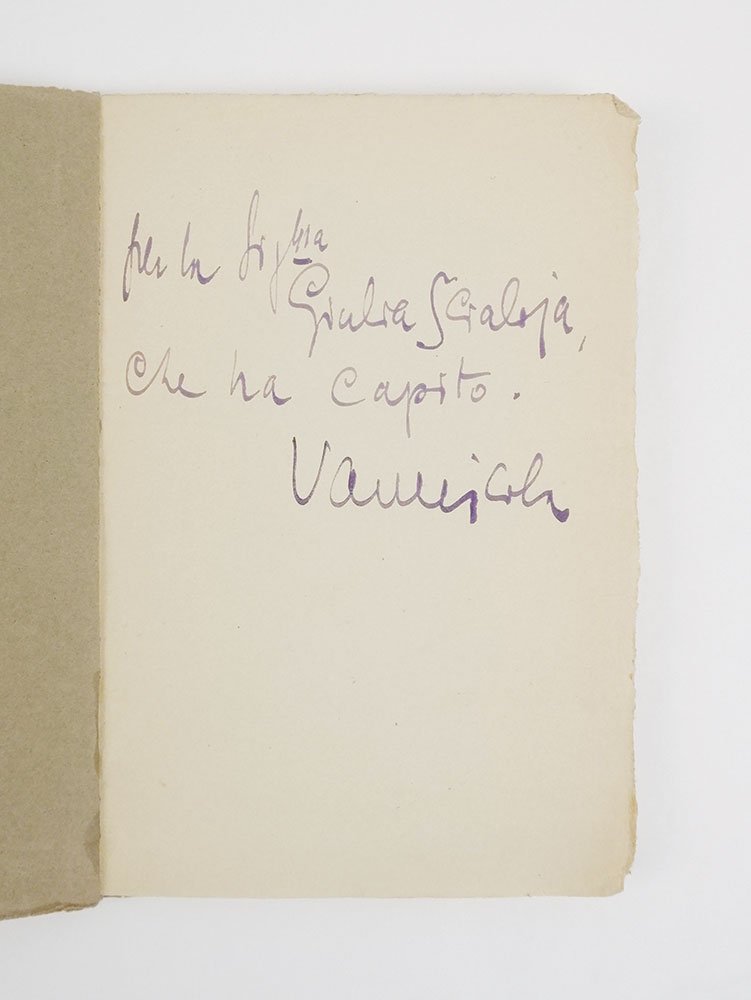 per la Sig.na
Giulia Scialoja,
che ha capito.
Vannicola